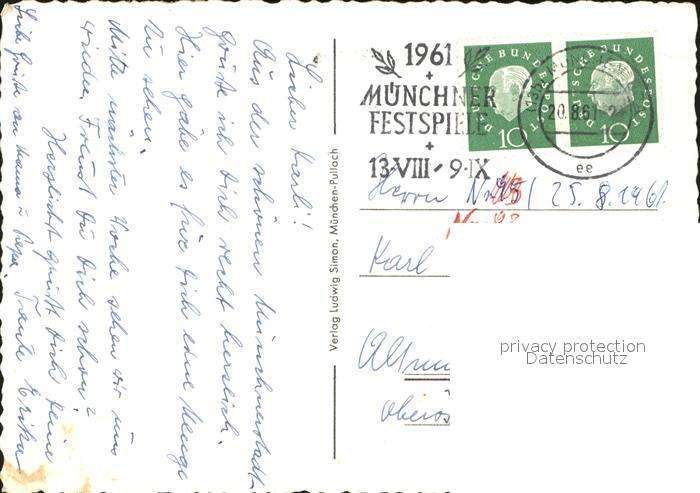 Lieber Karl!
Aus der schönen Münchnerstadt
grüße ich Dich recht herzlich.
Hier gäbe es für Dich eine Menge
zu sehen.
Mitte nächster Woche sehen wir uns
wieder. Freust Du Dich schon?
Herzlichst grüßt Dich Deine
Tante Erika
Liebe Grüße an Mama u. Papa.
Verlag Ludwig Simon, München-Pullach
1961
+
MÜNCHNER
FESTSPIELE
+
13·VIII - 9·IX
DEUTSCHE BUNDESPOST
10
DEUTSCHE BUNDESPOST
10
20.8.61
ee
Herrn 25.8.1961.
Karl
privacy protection
Datenschutz